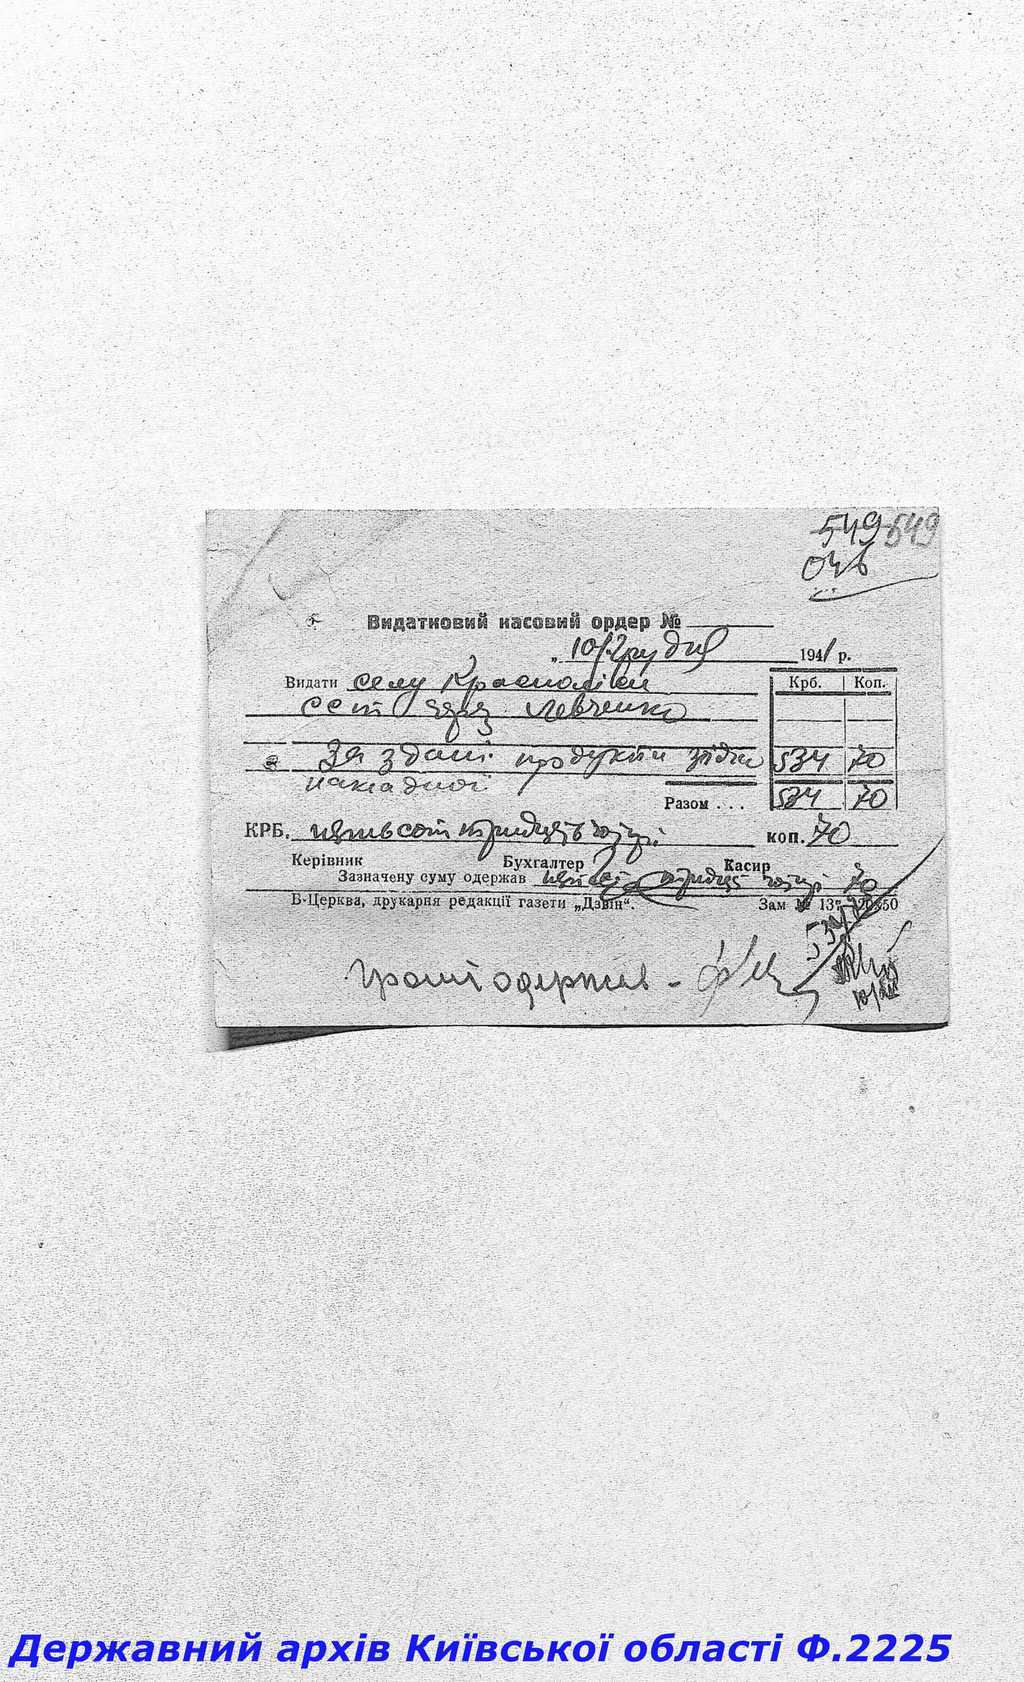 549 549
Видатковий касовий ордер №
„ 10/. Грудня 1941 р.
Видати селу
Крб. Коп.
Левченко
За здані продукти згідно 534 70
накладної
Разом . . . 534 70
КРБ. пятьсот тридцять чотирі коп. 70
Керівник Бухгалтер Касир
Зазначену суму одержав пятсот тридцять чотирі 70
Б-Церква, друкарня редакції газети „Дзвін“. Зам №
534/70
Гроші одержив -
10/XII
Державний архів Київської області Ф.2225